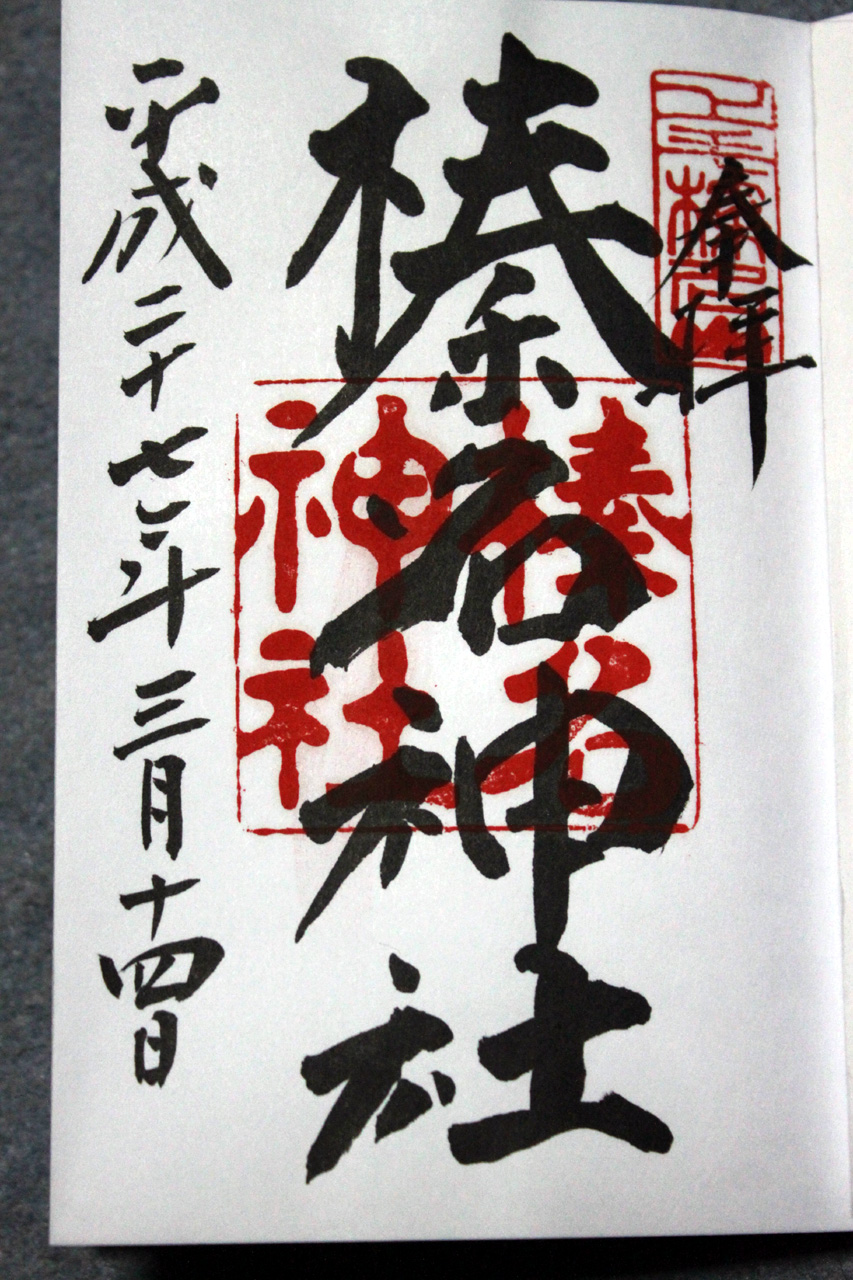 奉拝
榛名神社
榛名神社
平成二十七年三月十四日